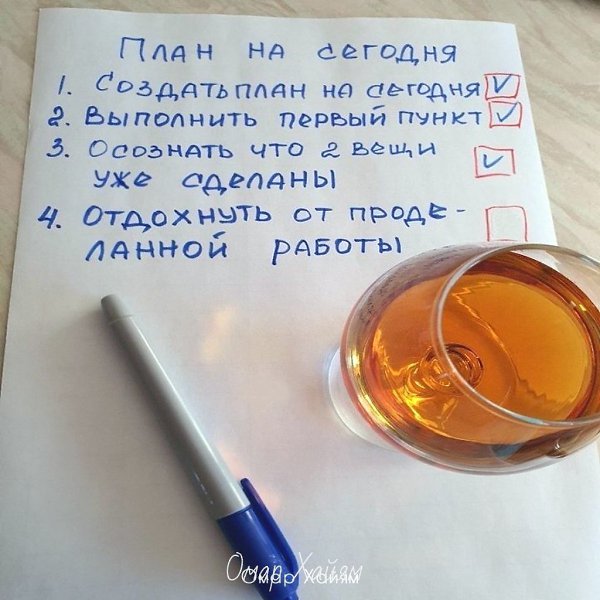 План на сегодня
1. Создать план на сегодня
2. Выполнить первый пункт
3. Осознать что 2 вещи
уже сделаны
4. Отдохнуть от проде-
ланной работы
Омар Хайям
Омар Хайям